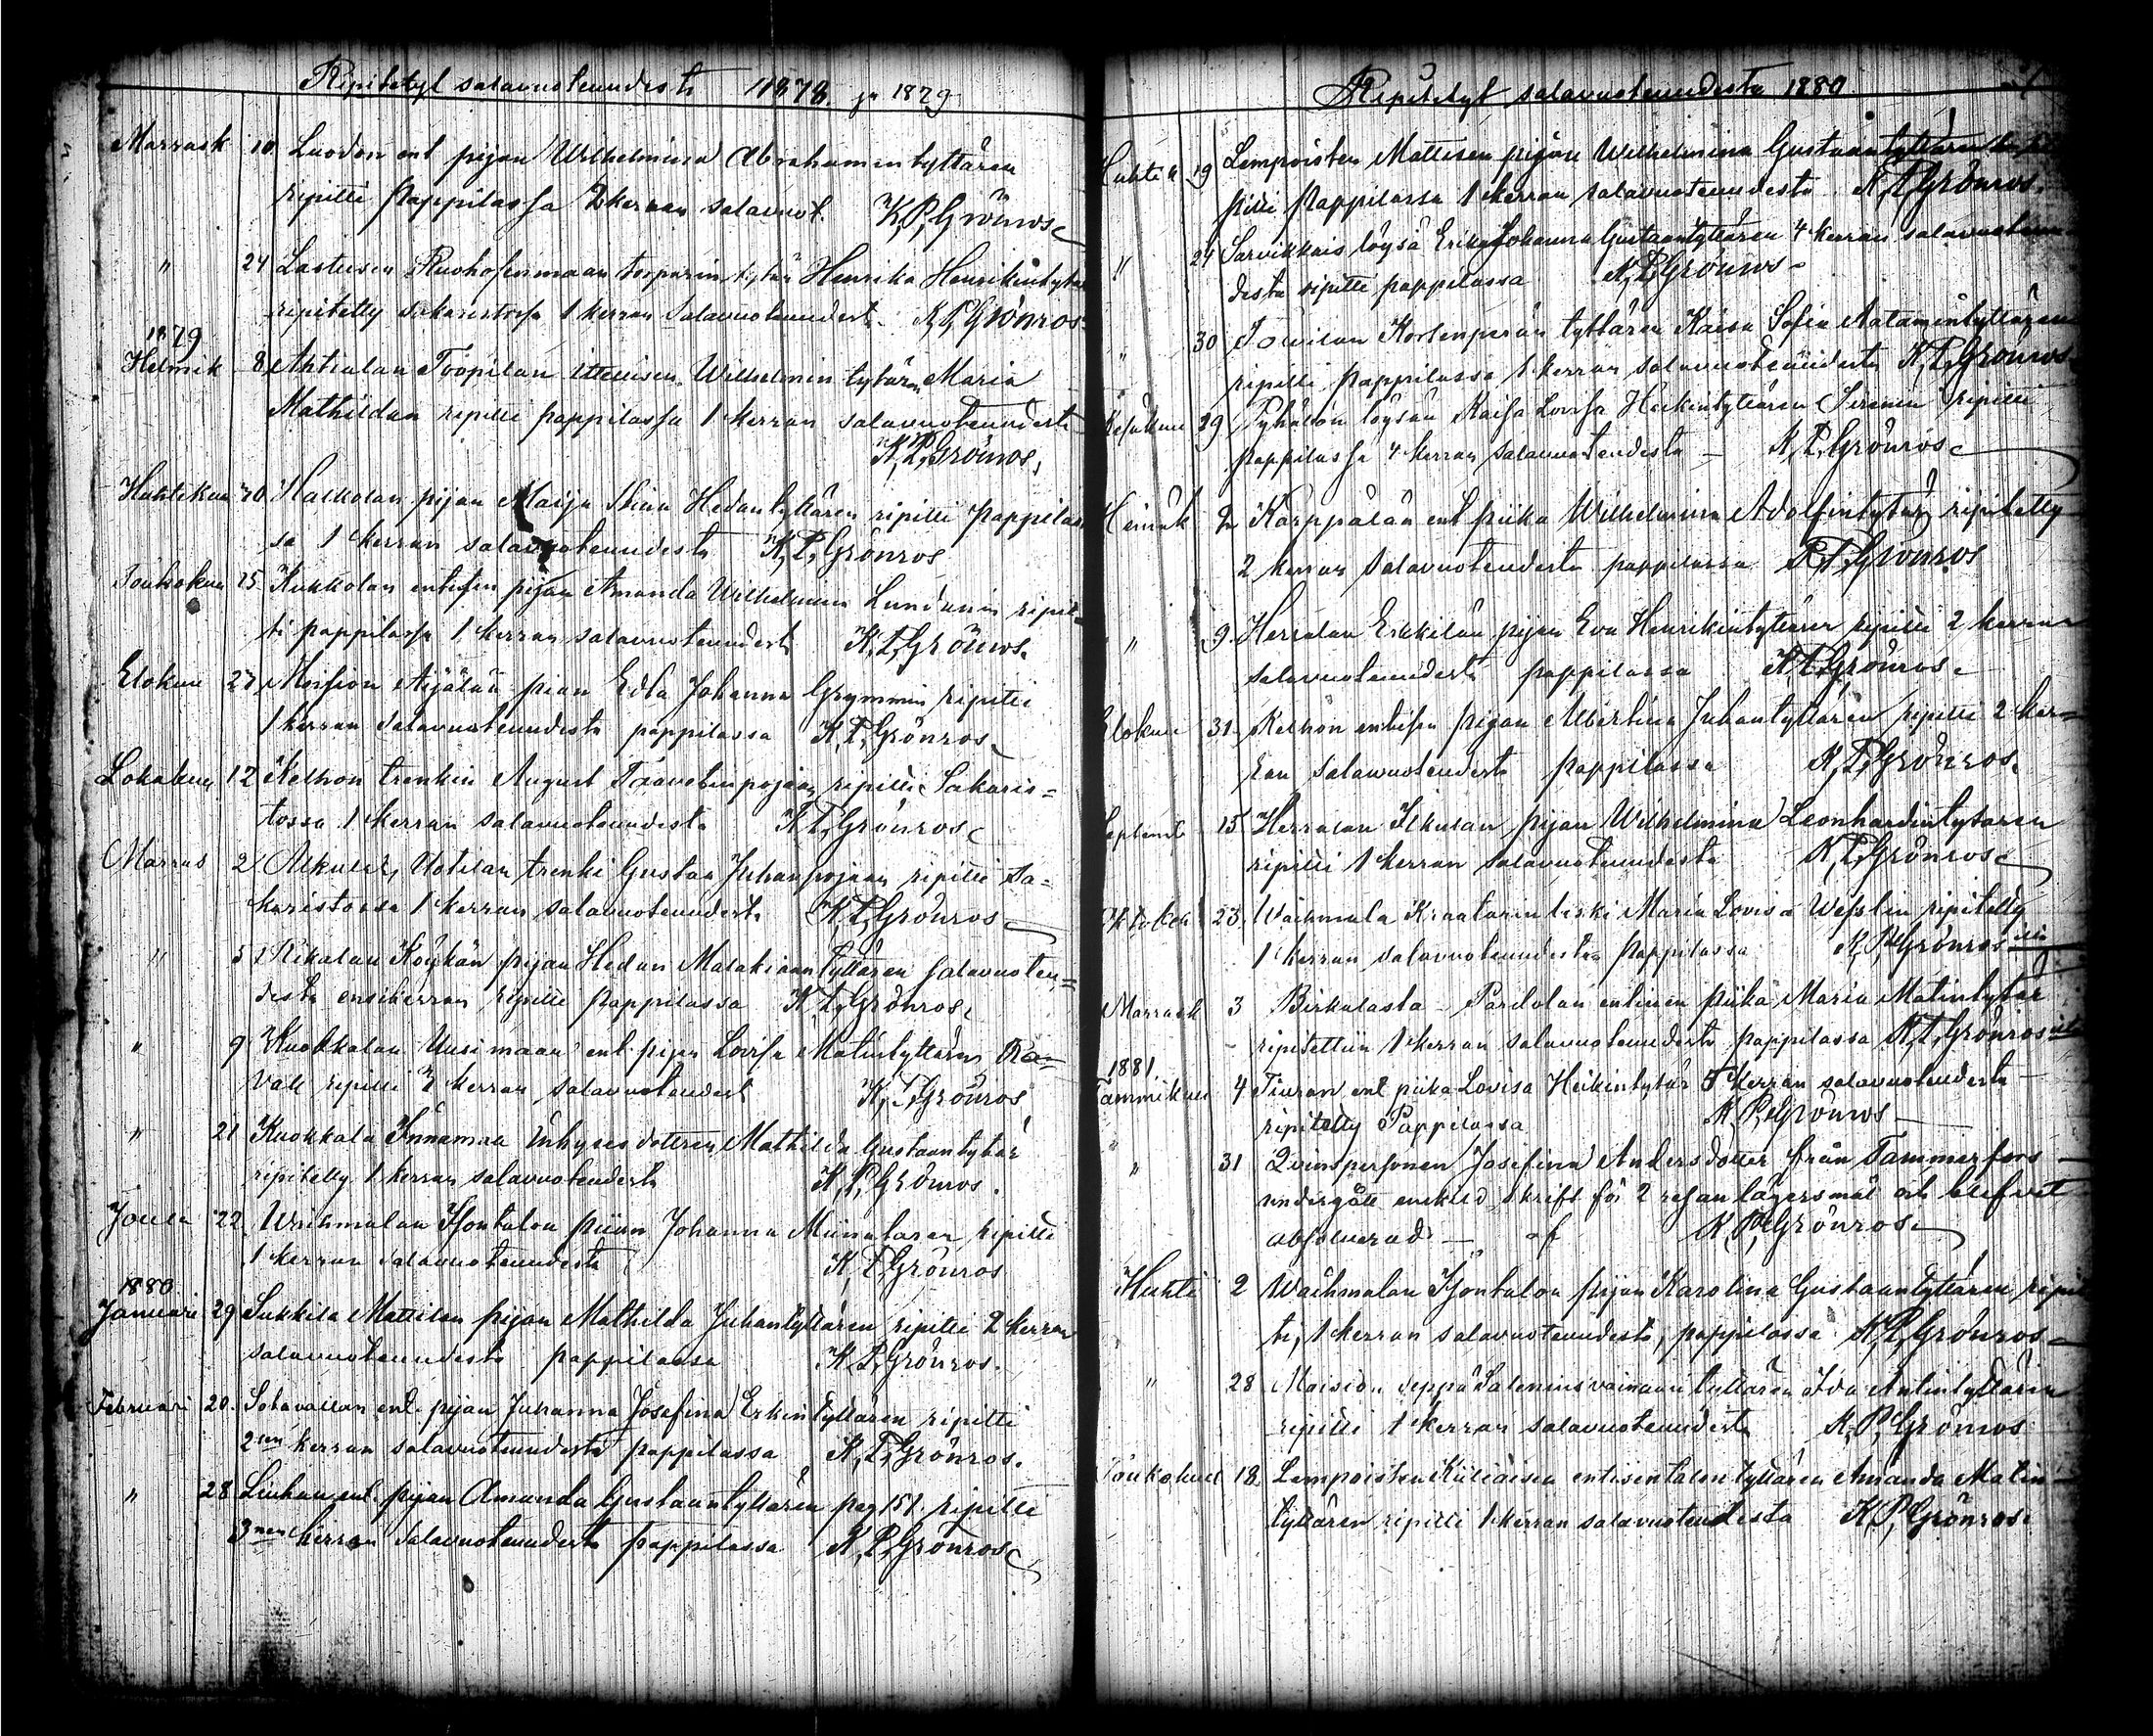 Ripitetyt salavuoteudesta 1878. ja 1879
Marrask 10 Luodon ent pijan Wilhelmina Abrahamin tyttären
ripitti pappilassa 2 kerran salavuot. K,P,Grönros
" 24 Lasteisen Ruohosenmaan torparin tytär Henrika Henrikintytär
ripitetty sakaristossa 1 kerran salavuoteudest. K,P,Grönros
1879
Helmik 8 Ahtialan Tööpilän ittellisen Wilhelmin tytären Maria
Mathildan ripitti pappilassa 1 kerran salavuoteudesta
K,P,Grönros,
Huhtikuu 20 pijan Maija Stina Hedantyttären ripitti pappilas
sa 1 kerran salavuoteudesta K,P,Grönros
Toukokuu 15 Kukkolan entisen pijan Amanda Wilhelmina Lundenin ripit
ti pappilassa 1 kerran salavuoteudest K,P,Grönros.
Elokuu 27 Moision Äijälän pian Edla Johanna Grymmin ripitti
1 kerran salavuoteudesta pappilassa K,P,Grönros
Lokakuu 12 Kelhon trenkin August Taavetinpojan ripitti Sakaris=
tossa 1 kerran salavuoteudesta K,P,Grönros
Marras 2 Alkula, Uotilan trenki Gustaa Juhanpojan ripitti sa=
karistossa 1 kerran salavuoteudesta K,P,Grönros
" 5 Nikalan Köykän pijan Hedan Malakiaantyttären salavuoteu=
desta ensikerran ripitti pappilassa K,P,Grönros,
" 9 Kuokkalan Uusimaan ent. pijan Lovisa Matintyttären
ripitti 3 kerran salavuoteudest K,P,Grönros
" 21 Kuokkala Innamaa Inhysesdottren Mathilda Gustaantytär
ripitetty 1 kerran salavuoteudesta K,P,Grönros.
Joulu 22 Waihmalan Isontalon piian Johanna ripitti
1 kerran salavuoteudesta K,P,Grönros
1880
Januari 29 Sukkila Mattilan pijan Mathilda Juhantyttären ripitti 2 kerran
salavuoteudesta pappilassa K,P,Grönros.
Februari 20. Sotavallan ent. pijan Juhanna Josefina Erkintyttären ripitti
2sen kerran salavuoteudesta pappilassa K,P,Grönros.
" 28 Liuhan ent. pijan Amanda Gustaantyttären pag 151. ripitti
3nen kerran salavuoteudesta pappilassa K,P,Grönros
Ripitetyt salavuoteudesta 1880
Huhtik 19 Lempoisten Mattisen pijan Wilhelmina Gustaantyttären
pitti pappilassa 1 kerran salavuoteudesta. K,P,Grönros.
" 24 Sarvikkais löysä Erika Johanna Gustaantyttären 4 kerran salavuoteu
desta ripitti pappilassa K,P,Grönros
" 30 Kortenperän tyttären Kaisa Sofia Aatamintyttären
ripitti pappilassa 1 kerran salavuoteudesta K,P,Grönros
Kesäkuu 29 Pyhällön löysän Kaisa Lovisa Heikintyttären Sirenin ripitti
pappilassa 4 kerran salavuoteudesta – K,P,Grönros
Heinäk 2 Karppälän ent piika Wilhelmina Adolfintytär ripitetty
2 kerran salavuoteudesta pappilassa K,P,Grönros
" 9. Herralan Erkkilän pijan Eva Henrikintyttären ripitti 2 kerran
salavuoteudesta pappilassa K,P,Grönros
Elokuu 31 Kelhon entisen pijan Albertina Juhantyttären ripitti 2 ker=
ran salavuoteudesta pappilassa K,P,Grönros.
Septemb 15 Herralan Ilkulan pijan Wilhelmina Leonhardintytären
ripitti 1 kerran salavuoteudesta K,P,Grönros
Oktober 23. Waihmala Kraatarin leski Maria Lovisa Wesslin ripitetty
1 kerran salavuoteudesta pappilassa K,P,Grönros
Marrask 3 Birkalasta – Pardolan entinen piika Maria Matintytär
ripitettiin 1 kerran salavuoteudesta pappilassa K,P,Grönros
1881.
Tammikuu 4 Tiuran ent piika Lovisa Heikintytär 5 kerran salavuoteudesta
ripitetty Pappilassa K,P,Grönros
" 31 Qvinspersonen Josefina Andersdotter från Tammerfors
undergått enskild skrift för 2 resan lägersmål och blefvet
absolverad – af K,P,Grönros
Huhti 2 Waihmalan Isontalon pijan Karolina Gustaantyttären ripit
ti, 1 kerran salavuoteudesta, pappilassa K,P,Grönros
" 28 Moision seppä Saleniusvainaan tyttären Ida Antintyttären
ripitti 1 kerran salavuoteudesta K,P,Grönros
Toukokuu 18. Lempoisten entisen talon tyttären Amanda Matin
tyttären ripitti 1 kerran salavuoteudesta K,P,Grönros.